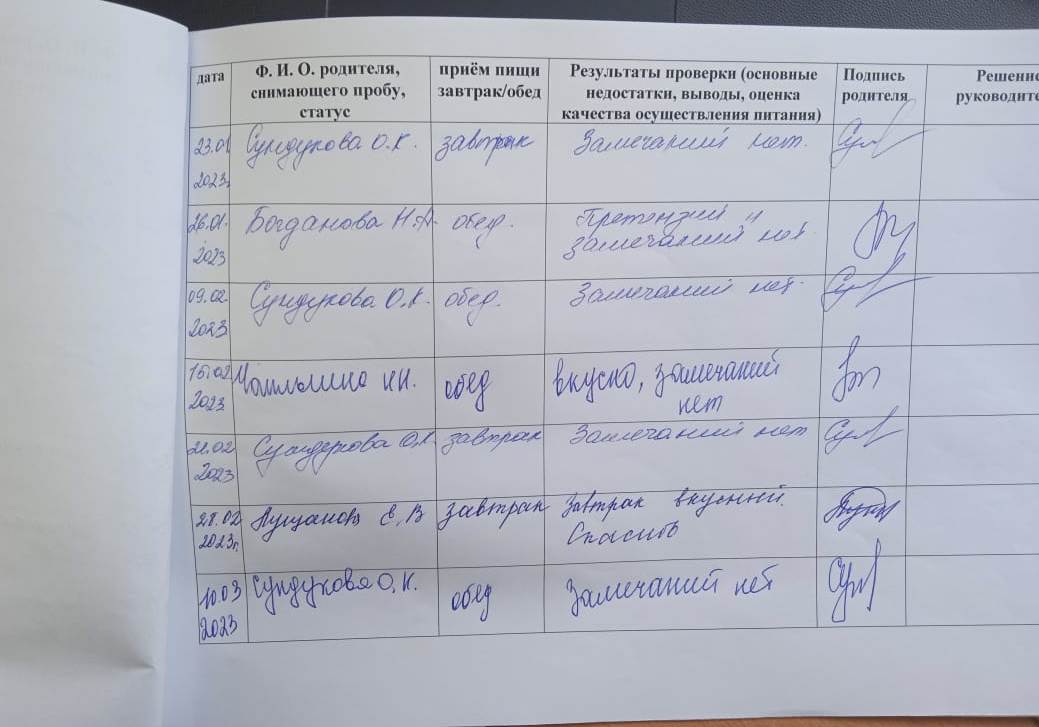 дата
Ф. И. О. родителя,
снимающего пробу,
статус
приём пищи
завтрак/обед
Результаты проверки (основные
недостатки, выводы, оценка
качества осуществления питания)
Подпись
родителя
Решение
руководите
23.01
2023г.
Сундукова О.К.
завтрак
Замечаний нет.
26.01.
2023
Богданова Н.А.
обед.
Претензий и
замечаний нет.
09.02.
2023
Сундукова О.К.
обед.
Замечаний нет.
15.02
2023
Н.
обед
вкусно, замечаний
нет
21.02
2023
Сундукова О.К.
завтрак
Замечаний нет
28.02
2023г.
Е,В
завтрак
Завтрак вкусный.
Спасибо
10.03
2023
Сундукова О.К.
обед
Замечаний нет